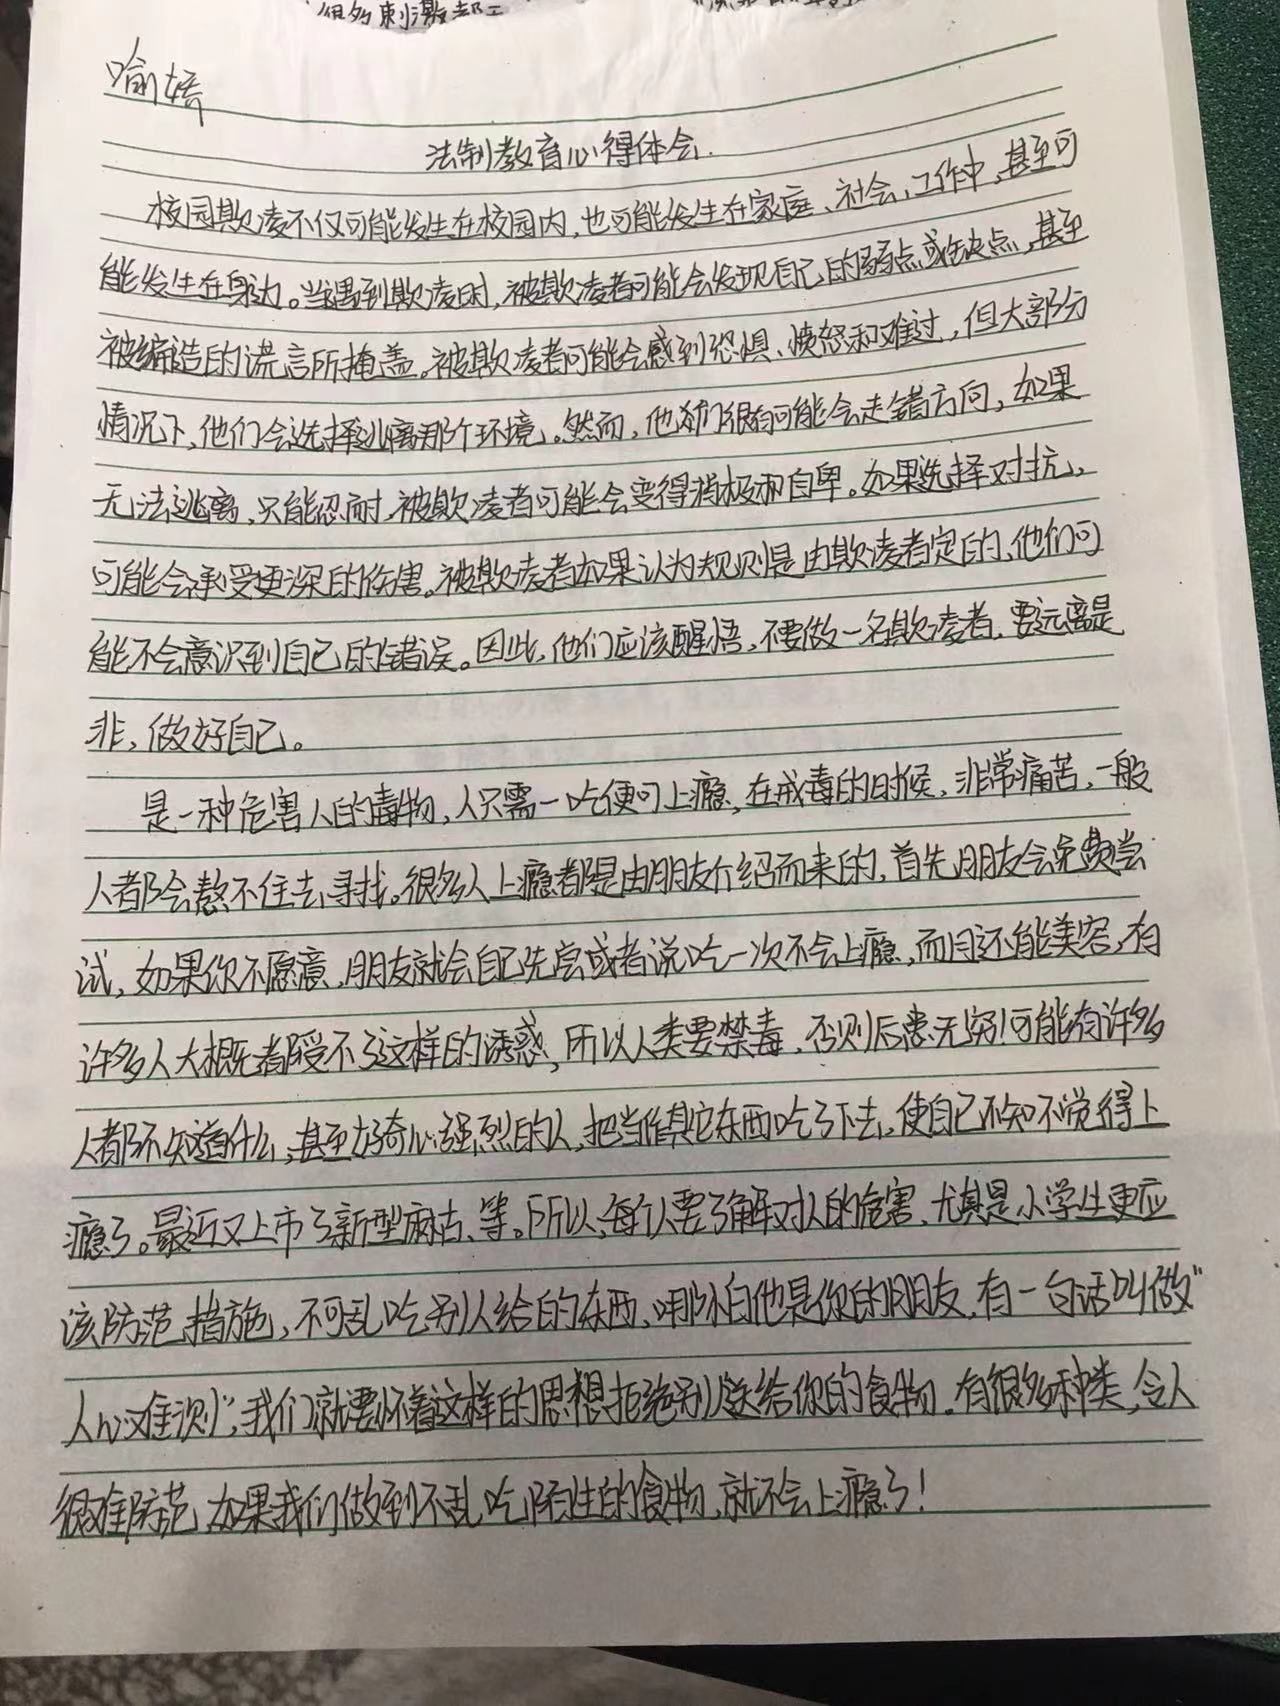 很多刺激都
喻婷
法制教育心得体会.
校园欺凌不仅可能发生在校园内,也可能发生在家庭、社会、工作中,甚至可
能发生在身边。当遇到欺凌时,被欺凌者可能会发现自己的弱点或缺点,甚至
被编造的谎言所掩盖。被欺凌者可能会感到恐惧、愤怒和难过,但大部分
情况下,他们会选择逃离那个环境。然而,他们很有可能会走错方向,如果
无法逃离,只能忍耐,被欺凌者可能会变得消极和自卑。如果选择对抗,
可能会承受更深的伤害。被欺凌者如果认为规则是由欺凌者定的,他们可
能不会意识到自己的错误。因此,他们应该醒悟,不要做一名欺凌者,要远离是
非,做好自己。
是一种危害人的毒物,人只需一吃便可上瘾,在戒毒的时候,非常痛苦,一般
人都会熬不住去寻找。很多人上瘾都是由朋友介绍而来的,首先朋友会免费尝
试,如果你不愿意,朋友就会自己先尝或者说吃一次不会上瘾,而且还能美容,有
许多人大概都受不了这样的诱惑,所以人类要禁毒,否则后患无穷!可能有许多
人都不知道什么,甚至好奇心强烈的人,把当作其它东西吃了下去,使自己不知不觉得上
瘾了。最近又上市了新型麻古、等。所以,每个人要了解对人的危害,尤其是小学生更应
该防范措施,不可乱吃别人给的东西,哪怕他是你的朋友,有一句话叫做"
人心难测",我们就要怀着这样的思想拒绝别人送给你的食物。有很多种类,令人
很难防范,如果我们做到不乱吃陌生的食物,就不会上瘾了!